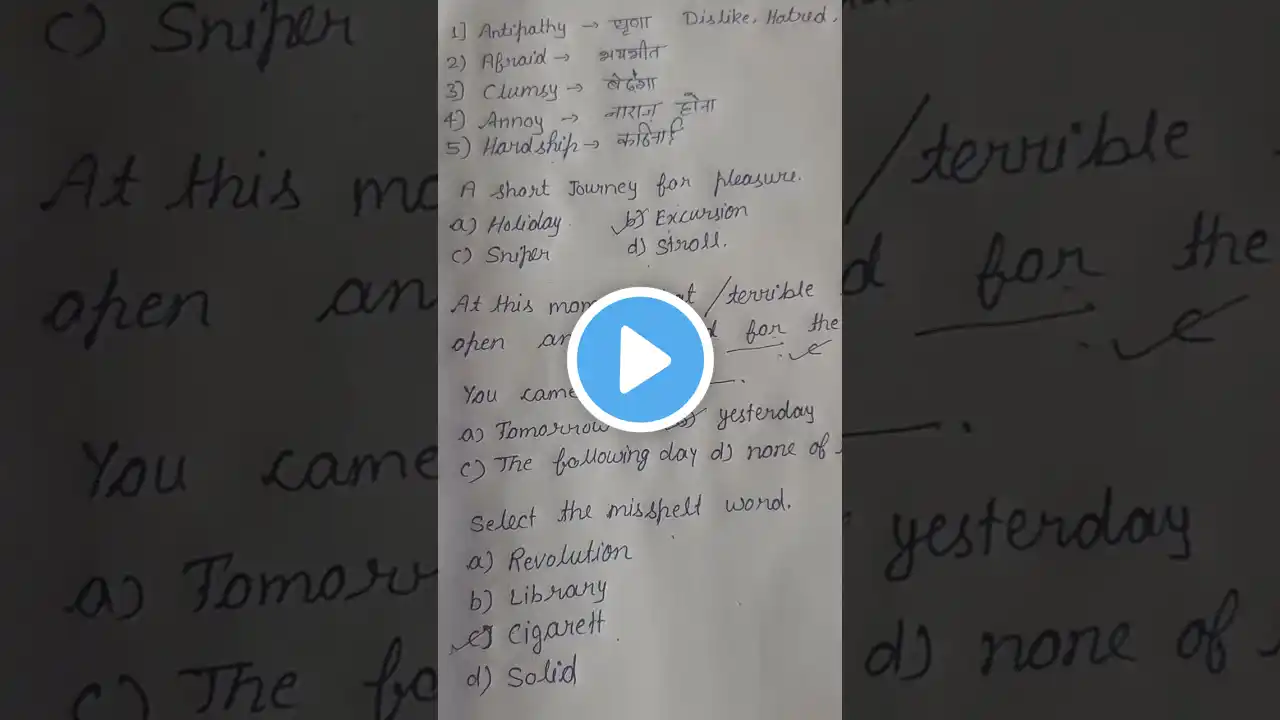 1] Antipathy → घृणा Dislike, Hatred,
2) Afraid → भयभीत
3) Clumsy → बेढंगा
4) Annoy → नाराज होना
5) Hardship → कठिनाई
A short Journey for pleasure.
a) Holiday b) Excursion
c) Sniper d) Stroll.
At this /terrible
open for the
You came
a) Tomorrow yesterday
c) The following day d) none of
Select the misspelt word.
a) Revolution
b) Library
c) Cigarett
d) Solid